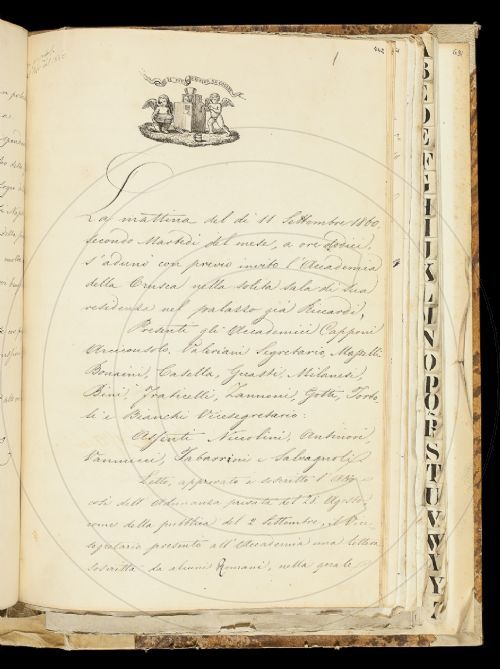 1
442
631
La mattina del dì 11 Settembre 1860,
secondo Martedì del mese, a ore dodici,
s'adunò con previo invito l'Accademia
della Crusca nella solita sala di sua
residenza nel palazzo già Riccardi,
Presenti gli Accademici Capponi
Arciconsolo, Valeriani Segretario,
Bonaini, Casella, Guasti, Milanesi,
Bini, Fraticelli, Zannoni, Gotti, Torto
li e Bianchi Vicesegretario:
Assenti Niccolini, Antinori,
Vannucci, Tabarrini e Salvagnoli.
Letto, approvato e soscritto l'Atto
così dell'Adunanza privata del 28 Agosto,
come della pubblica del 2 Settembre, il Vice
segretario presentò all'Accademia una lettera
soscritta da alcuni Romani, nella quale
A
B
C
D
E
F
G
H
I
J
K
L
M
N
O
P
Q
R
S
T
U
V
W
X
Y
Z